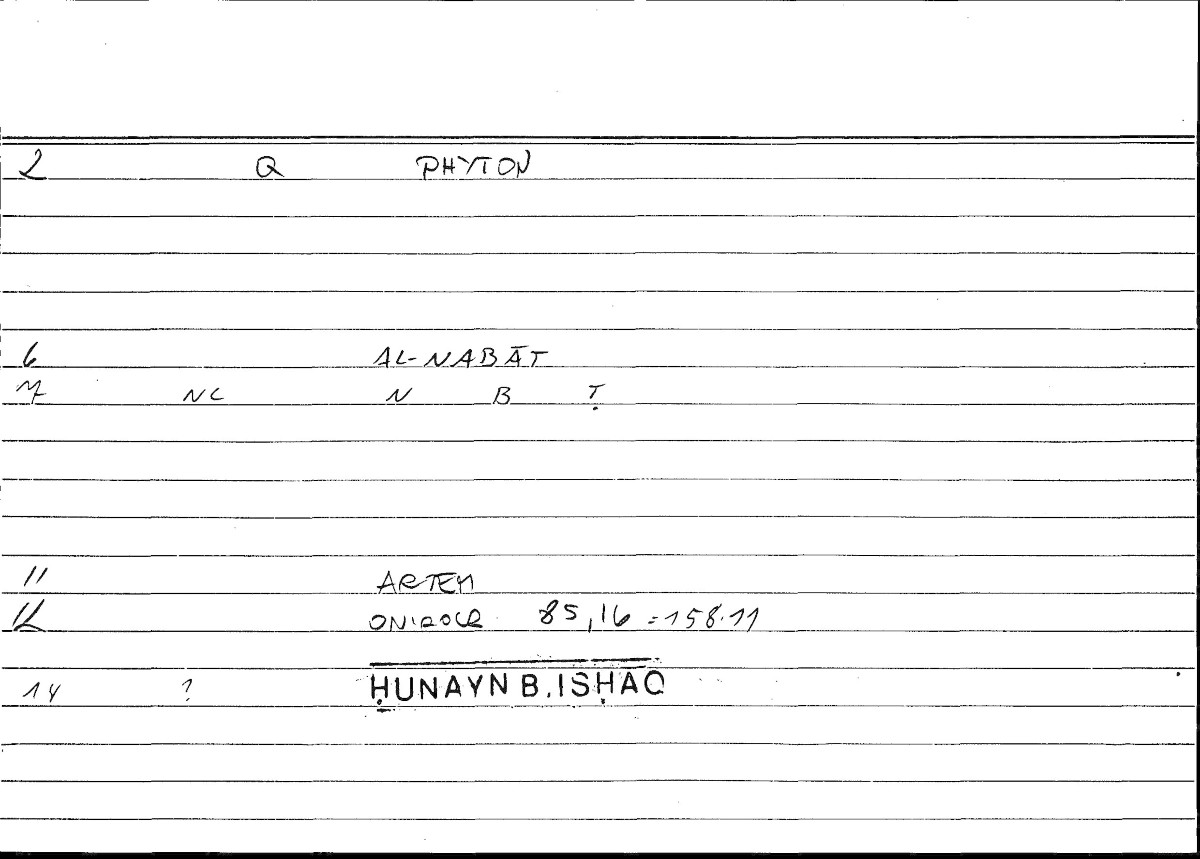 2 Q PHYTON
6 AL-NABĀT
7 NC N B Ṭ
11 ARTEM
12 ONIROCR 85,16 = 158.11
14 ? ḤUNAYN B. ISḤĀQ